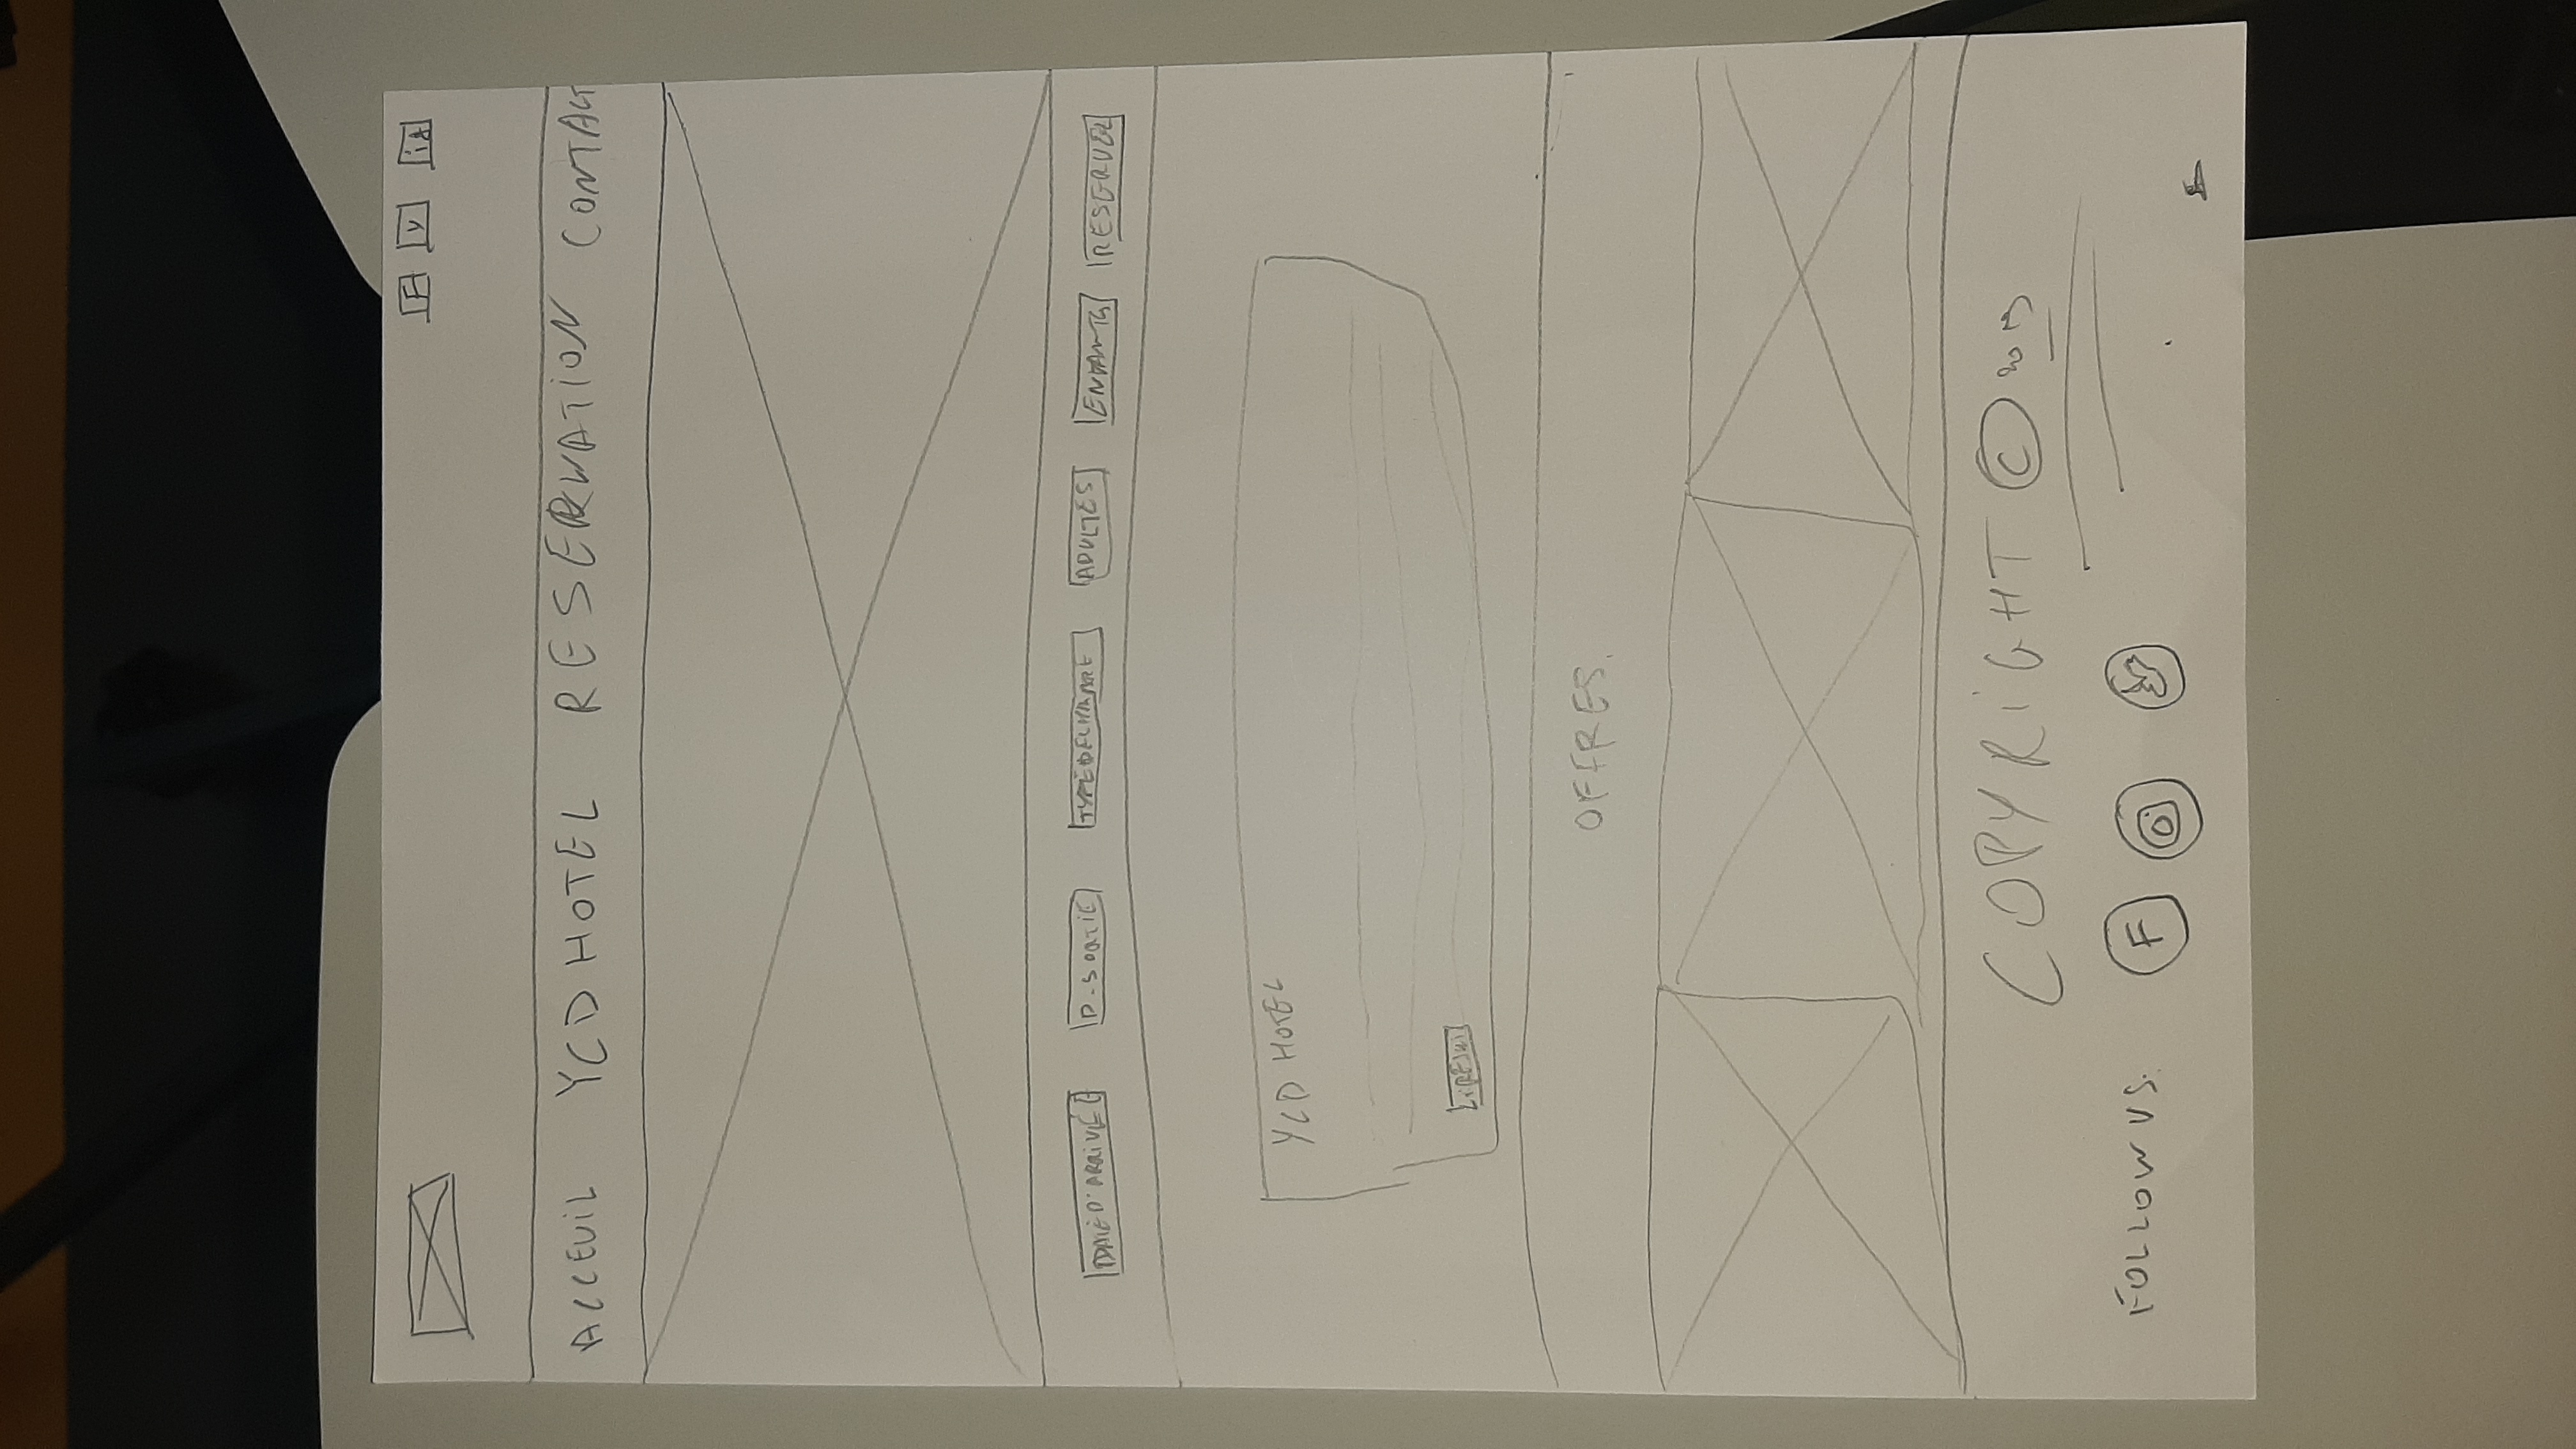 F y ig
ACCEUIL YCD HOTEL RESERVATION CONTACT
DATE D'ARRIVÉE D-SORTIE TYPE DE CHAMBRE ADULTES ENFANTS RESERVER
YCD HOTEL
OFFRES.
COPYRIGHT © 2019
FOLLOW US: F